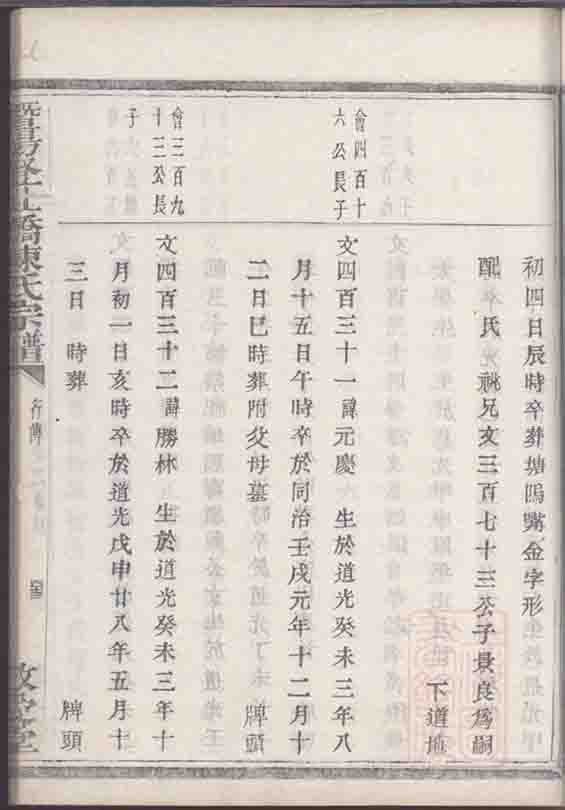 初四日辰時卒葬塘塢嘴金字形
配 氏光祧兄文三百七十三公子景良爲嗣
下道地
會四百十
六公長子
文四百三十一諱元慶 生於道光癸未三年八
月十五日午時卒於同治壬戌元年十二月十
二日巳時葬附父母墓 牌頭
會三百九
十三公長
子
文四百三十二諱勝林 生於道光癸未三年十
月初一日亥時卒於道光戊申廿八年五月十
三日 時葬 牌頭
橋陳氏宗譜 行傳